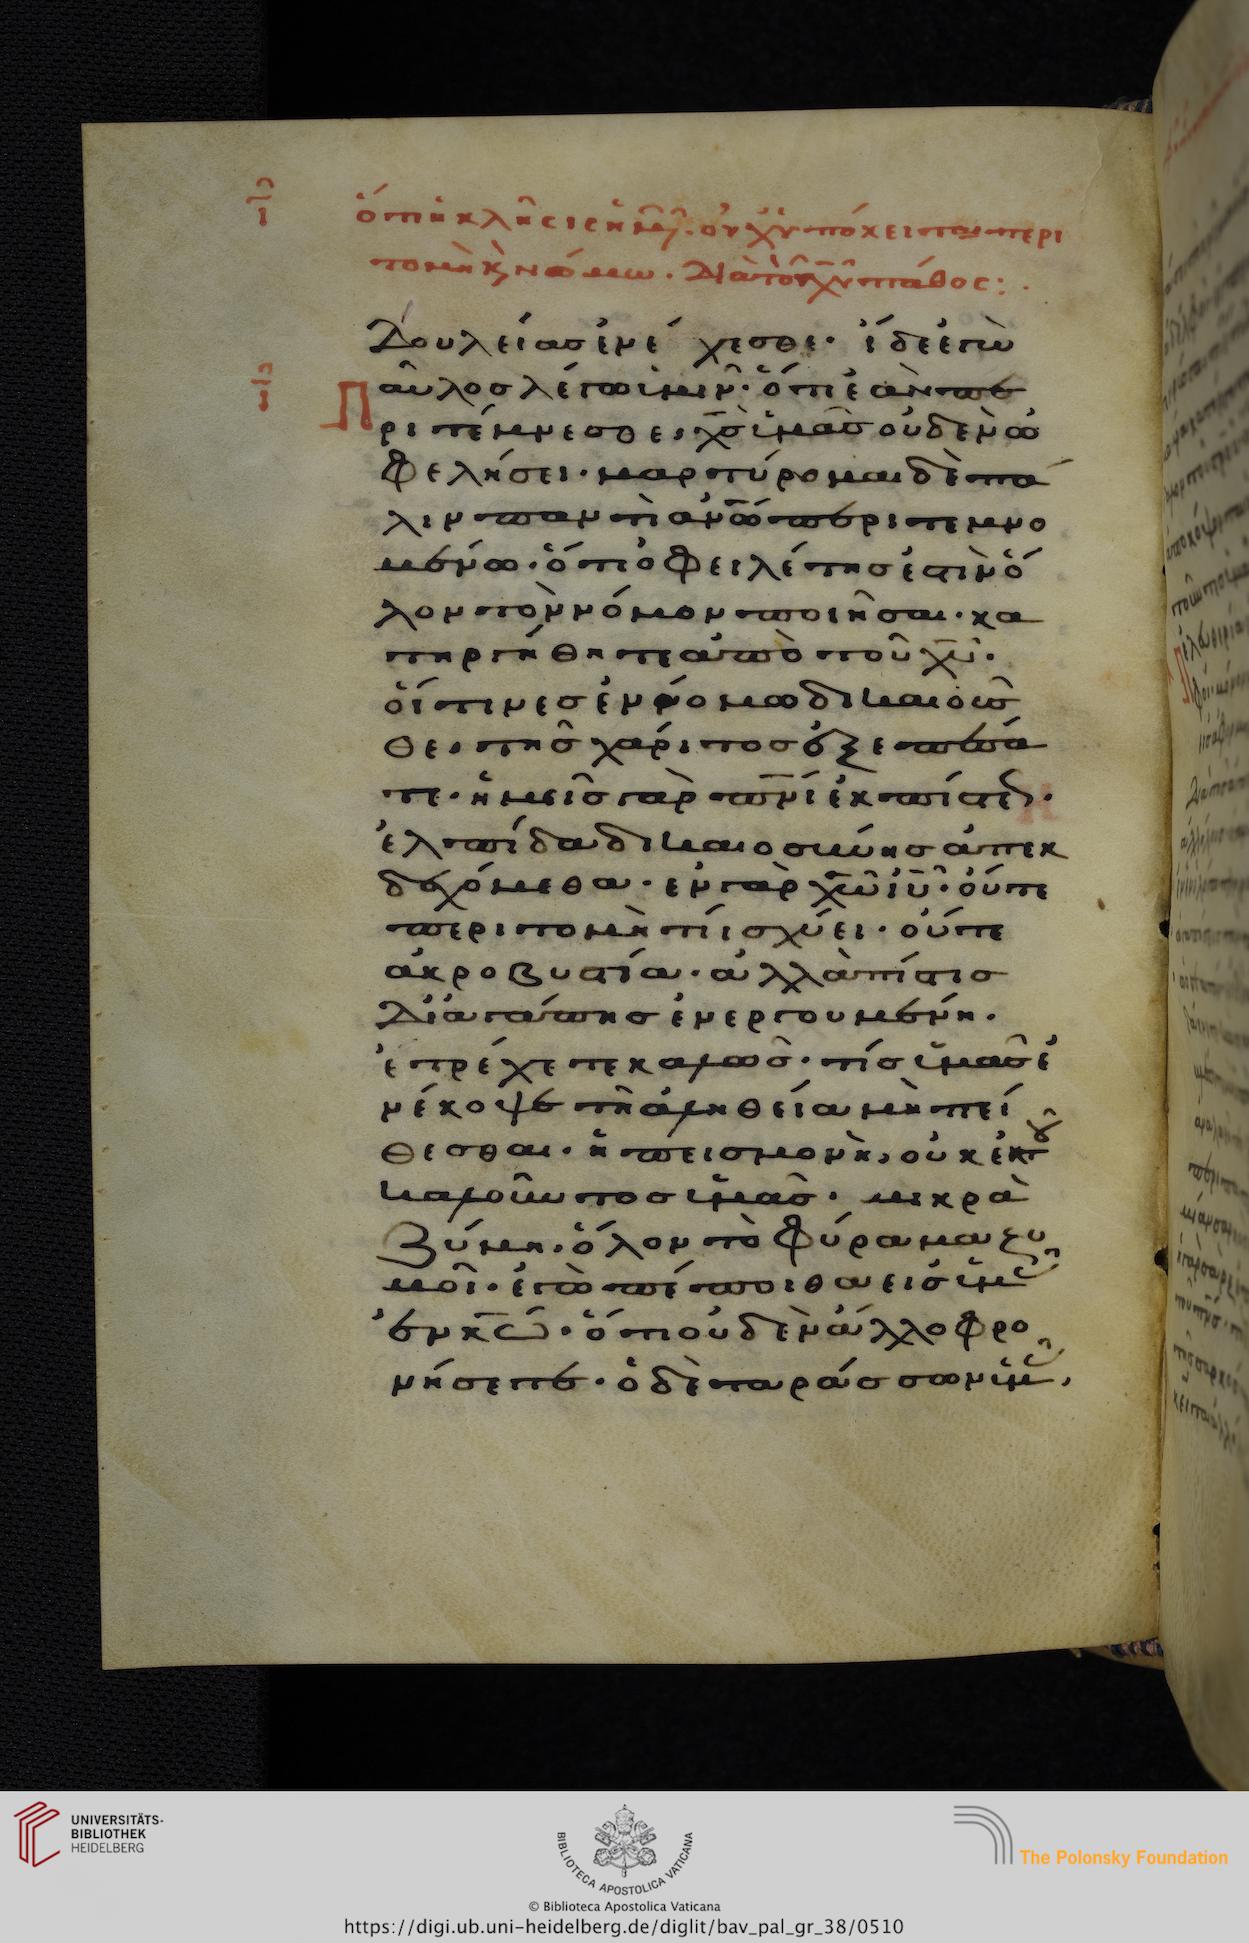 ι
ὅτι ἡ κλῆσις ἡμῶν. οὐχ ὑπόκειται περι
τομῆ κ νόμω. διὰ τὸ τοῦ χυ πάθος:.
Δουλείας ἐνέχεσθε· ἴδε ἐγὼ
ια
Παῦλος λέγω ὑμῖν· ὅτι ἐὰν πε
ριτέμνεσθε, χσ ὑμᾶς οὐδὲν ὠ
φελήσει· μαρτύρομαι δὲ πά
λιν παντὶ ἀνω περιτεμνο
μένω· ὅτι ὀφειλέτης ἐστὶν ὅ
λον τὸν νόμον ποιῆσαι· κα
τηργήθητε ἀπὸ τοῦ χυ·
οἵτινες ἐν νόμω δικαιοῦσ
θε, τῆς χάριτος ἐξεπέσα
τε· ἡμεῖς γὰρ πνι ἐκ πίστεως·
ἐλπίδα δικαιοσύνης ἀπεκ
δεχόμεθα· ἐν γὰρ χω ιυ· οὔτε
περιτομή τι ἰσχύει· οὔτε
ἀκροβυστία· ἀλλὰ πίστις
Δἰ ἀγάπης ἐνεργουμένη·
ἐτρέχετε καλῶς· τίς ὑμᾶς ἐ
νέκοψε τῆ ἀληθεία μὴ πεί
θεσθαι· ἡ πεισμονὴ, οὐκ ἐκ τοῦ
καλοῦντος ὑμᾶς· μικρὰ
Ζύμη, ὅλον τὸ φύραμα ζυ
μοῖ· ἐγὼ πέποιθα εἰς ὑμᾶς
ἐν κω· ὅτι οὐδὲν ἄλλο φρο
νήσετε· ὁ δὲ ταράσσων ὑμᾶς,
UNIVERSITÄTS-
BIBLIOTHEK
HEIDELBERG
BIBLIOTECA APOSTOLICA VATICANA
The Polonsky Foundation
© Biblioteca Apostolica Vaticana
https://digi.ub.uni-heidelberg.de/diglit/bav_pal_gr_38/0510